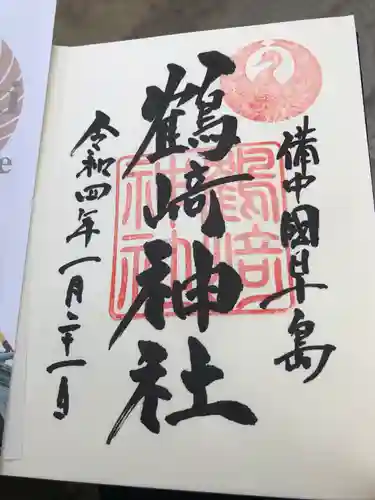 備中國早島
鶴﨑神社
鶴﨑神社
令和四年一月二十一日